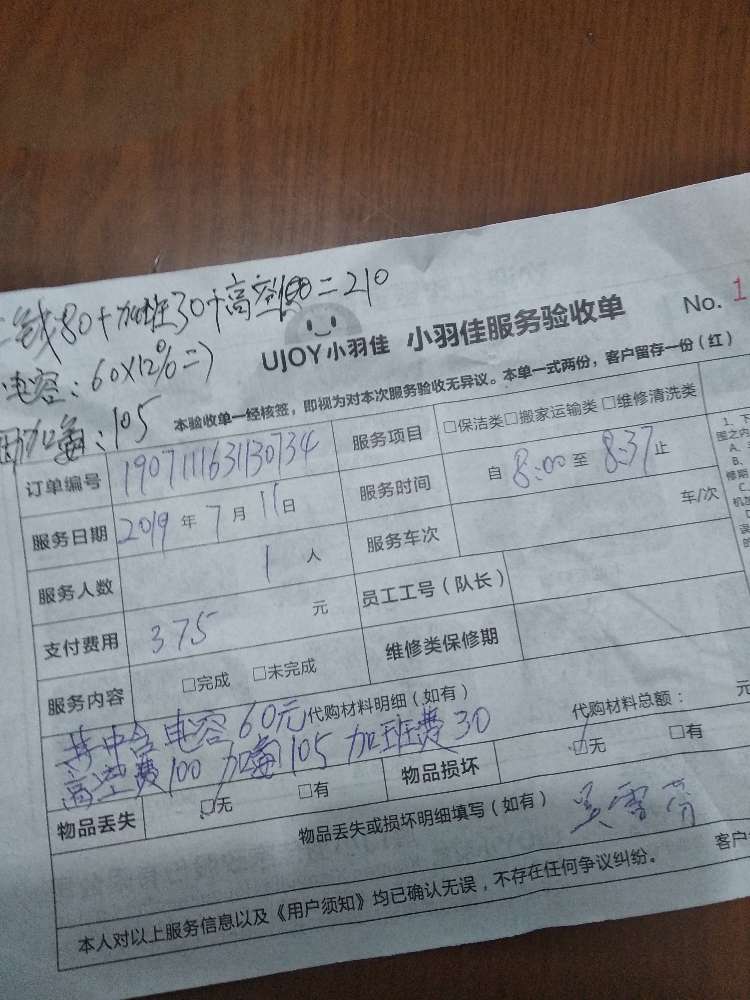 线80+加班30+高空100=210
电容:60×12%=)
加氟:105
UJOY小羽佳 小羽佳服务验收单
No. 1
本验收单一经核签,即视为对本次服务验收无异议。本单一式两份,客户留存一份(红)
订单编号 190711163130734 服务项目 □保洁类□搬家运输类□维修清洗类
服务日期 2019 年 7 月 11 日 服务时间 自 8:00 至 8:37 止
服务人数 1 人 服务车次 车/次
支付费用 375 元 员工工号(队长)
服务内容 □完成 □未完成 维修类保修期
代购材料明细(如有) 代购材料总额: 元
其中含电容60元
高空费100 加氟105 加班费30
物品丢失 □无 □有 物品损坏 □无 □有
物品丢失或损坏明细填写(如有)
本人对以上服务信息以及《用户须知》均已确认无误,不存在任何争议纠纷。 客户
1、下
围之内
A、
B、
修期
C、
机加